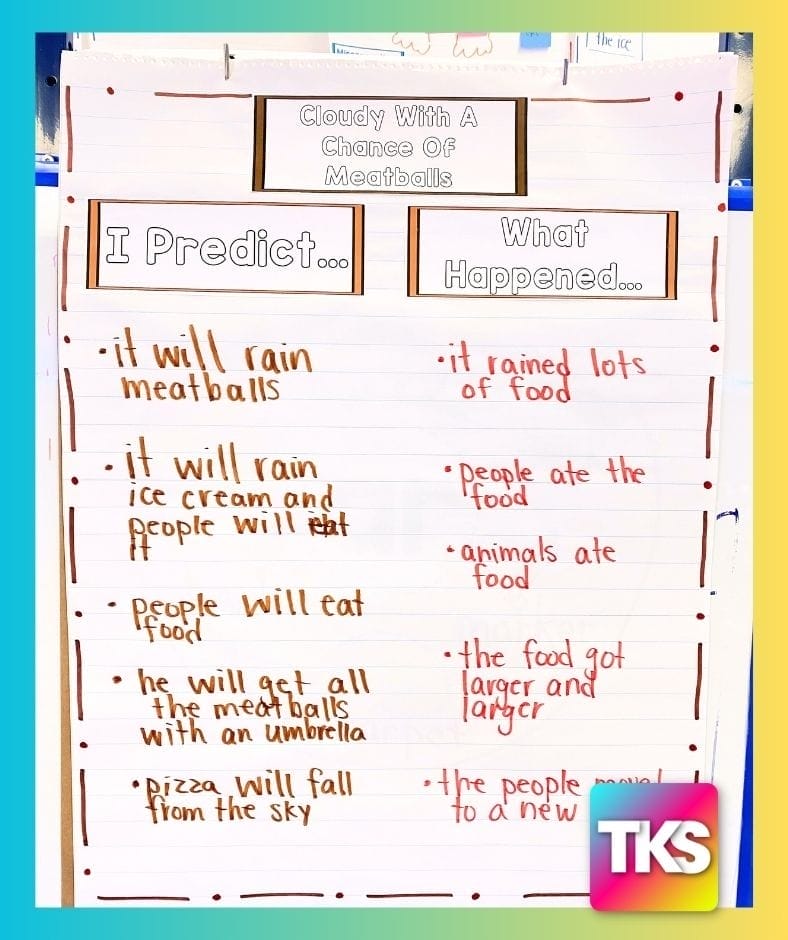 the ice
Cloudy With A
Chance Of
Meatballs
I Predict...
What
Happened...
•it will rain
meatballs
•it will rain
ice cream and
people will eat
it
•people will eat
food
•he will get all
the meatballs
with an umbrella
•pizza will fall
from the sky
•it rained lots
of food
•people ate the
food
•animals ate
food
•the food got
larger and
larger
•the people moved
to a new
TKS